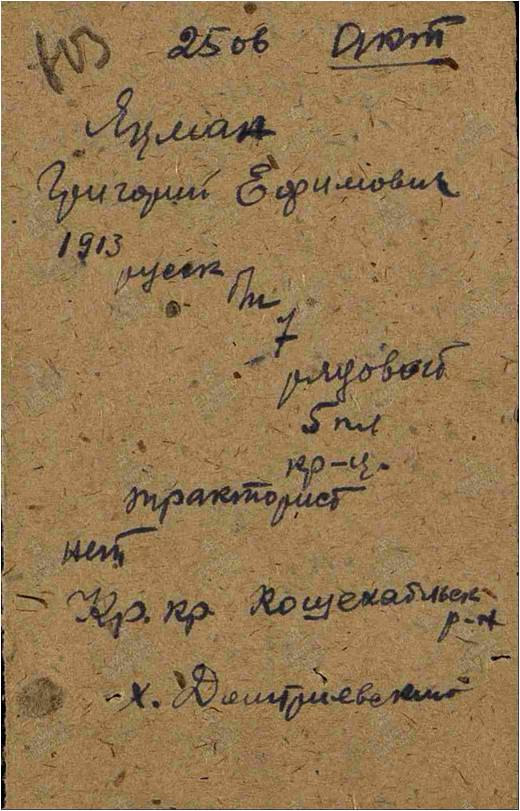 803
2506 Акт
Яцман
Григорий Ефимович
1913
русск б/п
7
рядовой
5 пл
кр-ц.
тракторист
нет
Кр. кр Кошехабльск
р-н
х. Дмитриевский